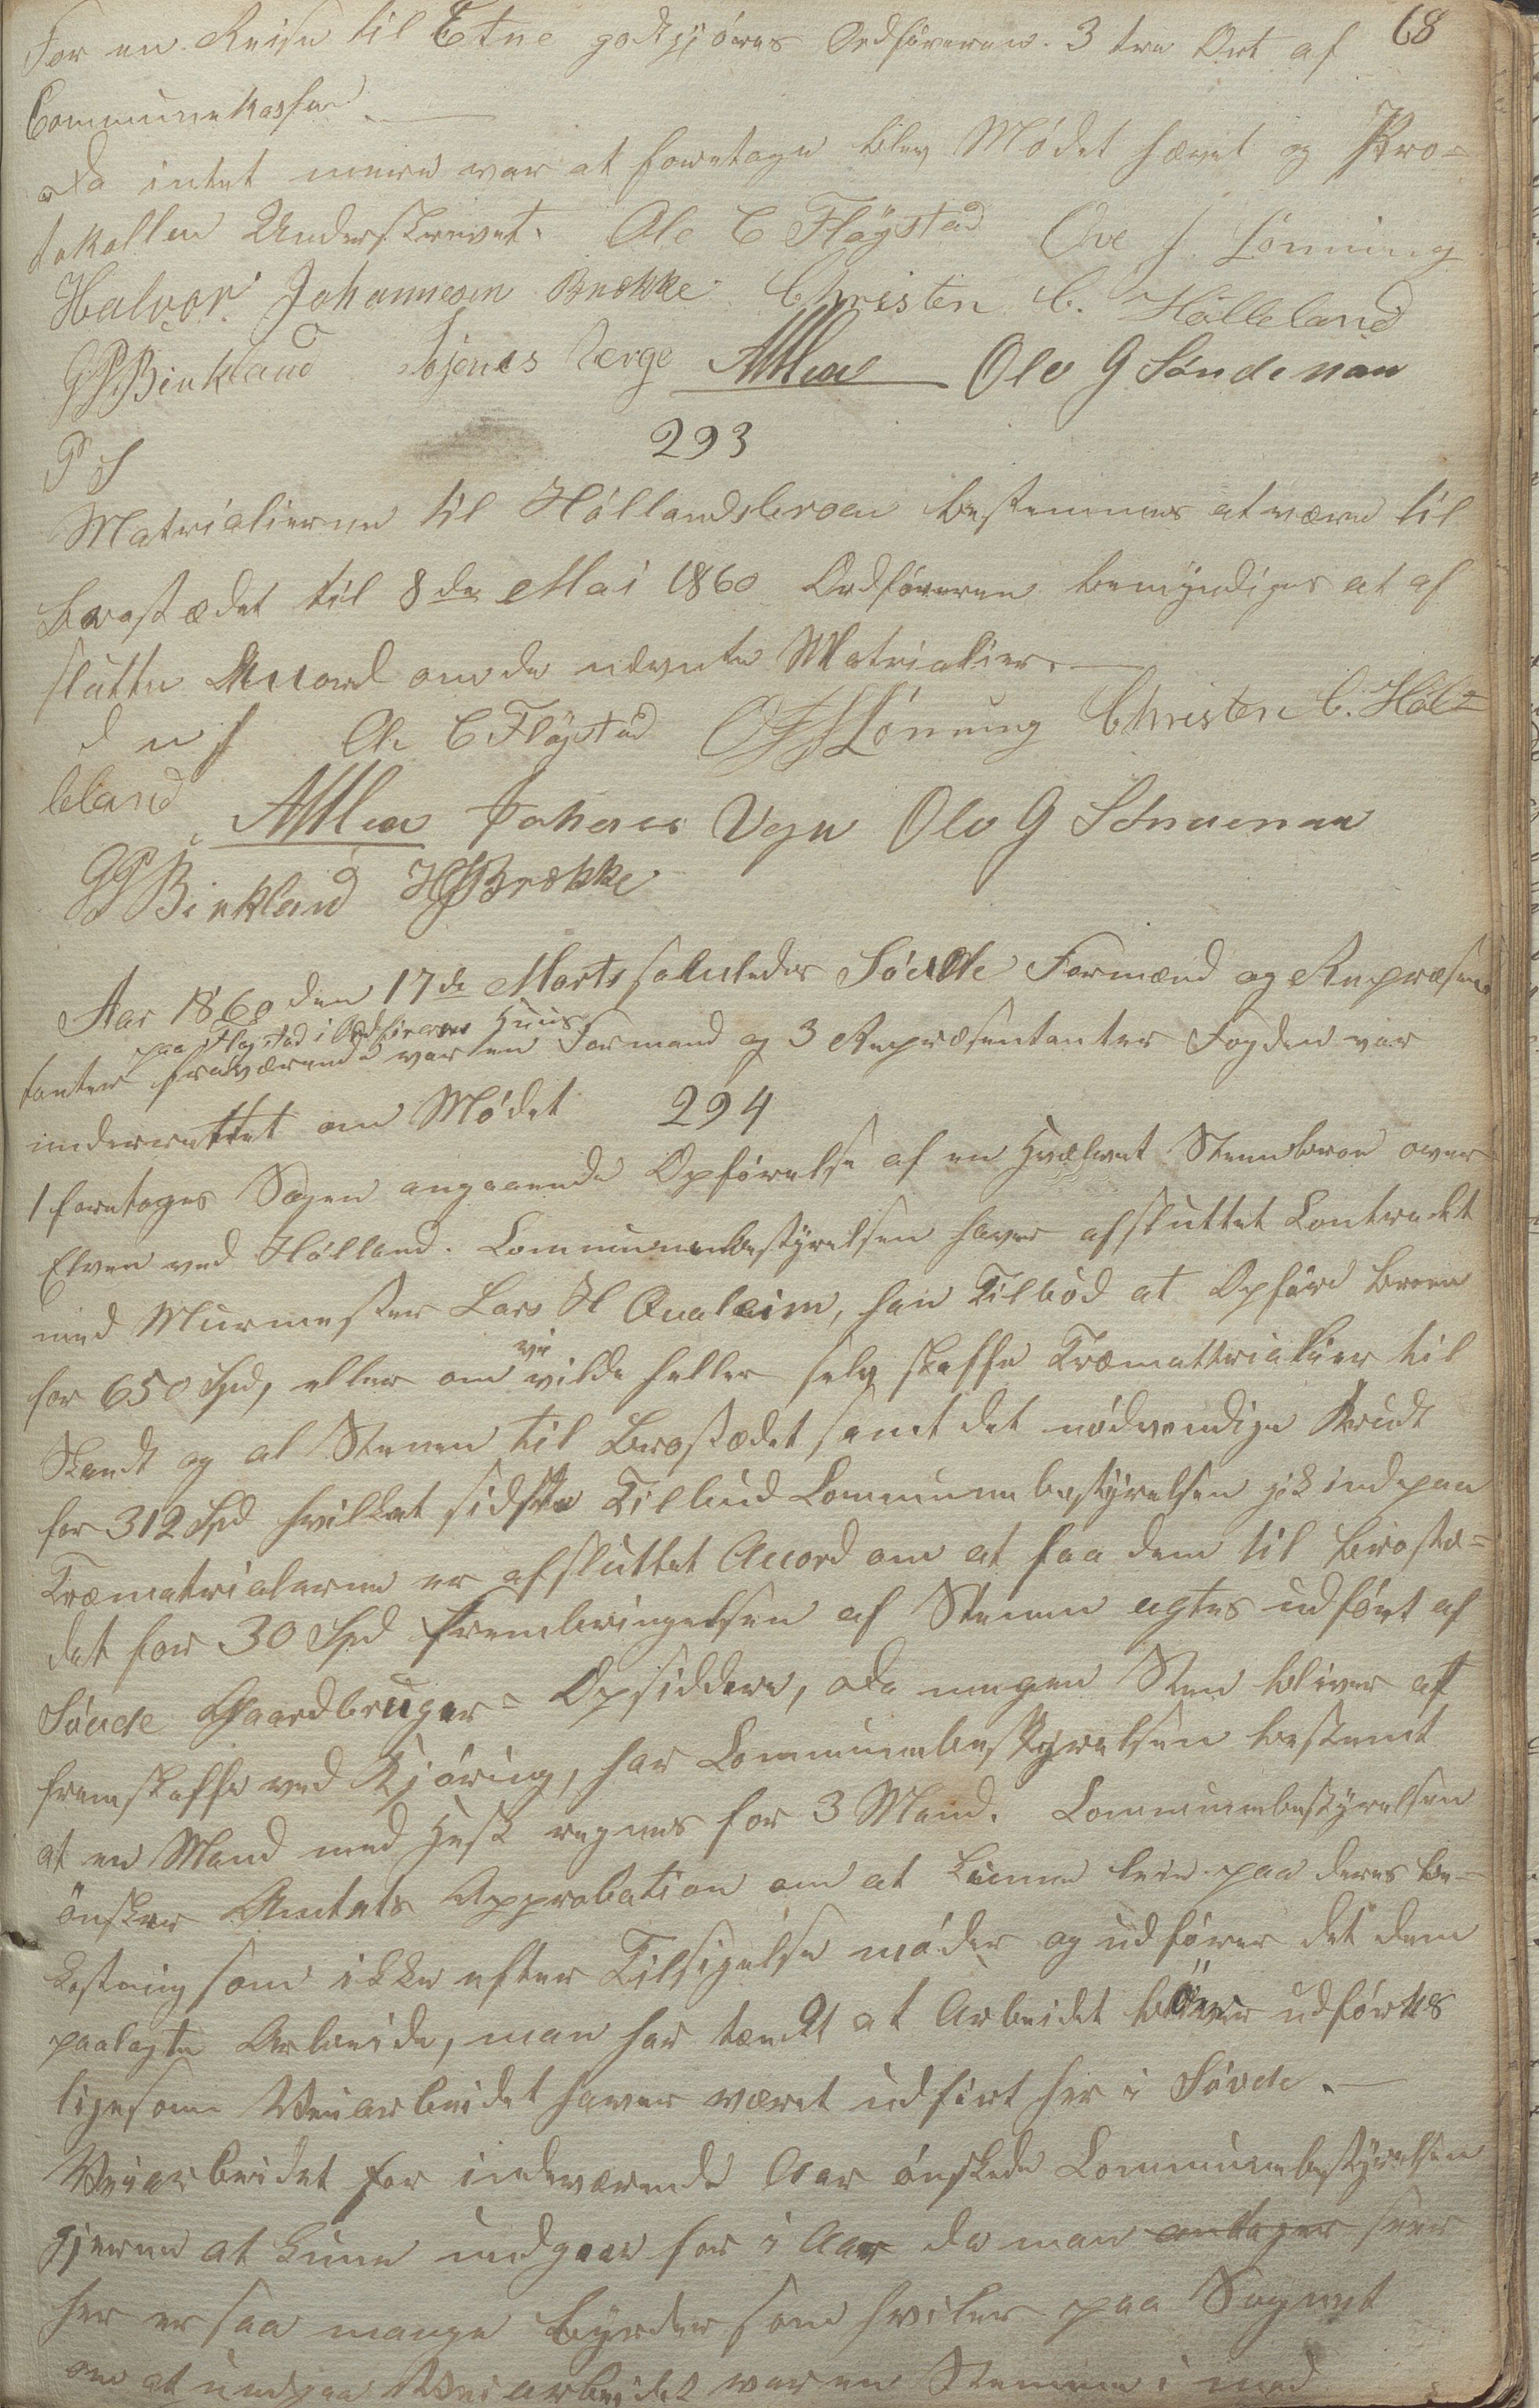 68
For en Reise til Etne godtgjöres Ordföreren 3 tre Ort af
Communekassen. —
Da intet mere var at foretage blev Mödet hævet og Pro-
tokollen Underskrevet. Ole C Fløgstad Ove J. Lönning
Halvor Johannesen Brække Christen C. Hölleland
GPBirkland Ole G Söndenaa
293
P S
Matrialierne til Höllandsbroen bestemmes at være til
brostædet til 8de Mai 1860 Ordföreren bemyndiges at af
slutte Accord om de nævnte Matrialier. —
d u s Ole C Fløgstad Lönning Christen C. Höl=
leland Johanes Ole G Sönnenaa
GPBirkland HJBrække
Aar 1860 den 17de Marts samledes Sövde Formænd og Repræsen
paa Fløgstad i Ordförerens Huus
tanter fraværende var en Formand og 3 Repræsentanter Fogden var
underrettet om Mödet 294
1 foretoges Sagen angaaende Opförelse af en Hvælvet Steenbroe over
Elven ved Hölland. Communebestyrelsen haver afsluttet Contrakt
med Murmester Lars H Qualeim, han Tilböd at Opföre broen
for 650 Spd, eller om vi vilde heller selv skaffe Træmattrialier til
Standt og al Stenen til Brostædet samt det nödvendige Krudt
for 312 Spd hvilket sidste Tilbud Communebestyrelsen gik ind paa
Træmatrialerne er afsluttet Accord om at faa dem til brostæ=
det for 30 Spd frembringelsen af Stenen agtes udfört af
Söude Gaardbruger= Opsiddere, da megen Sten bliver at
fremskaffe ved Kjöring, har Communebestyrelsen bestemt
at en Mand med Hest regnes for 3 Mand. Communebestyrelsen
önsker Amtets Approbation om at kunne leie paa deres be-
kostning som ikke efter Tilsigelse möder og udförer det dem
paalagte Arbeide, man har tænkt at Arbeidet böver udförtes
ligesom Veiarbeidet haver været udfört her i Sövde. —
Veiarbeidet for indeværende Aar önskede Communebestyrelsen
gjerne at kune undgaaes for i Aar da man antager seer
her er saa mange byrder som hviler paa Sognet
om at undgaa Veiarbeidet var en Stemme i mod